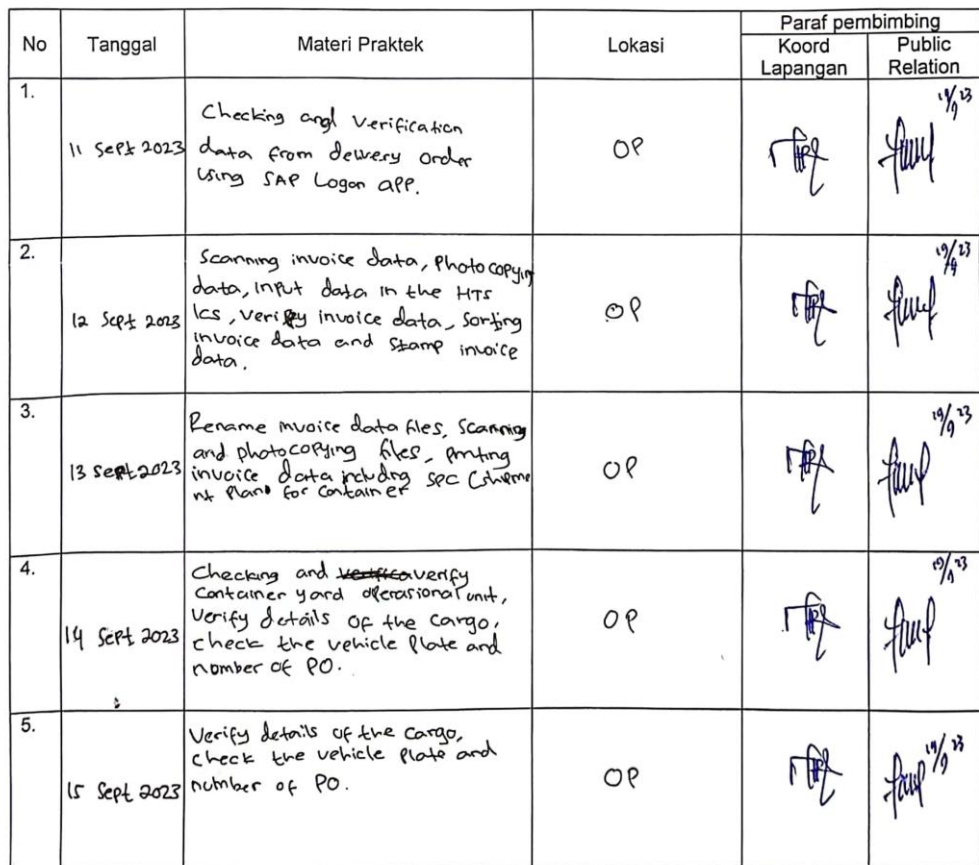 No Tanggal Materi Praktek Lokasi Paraf pembimbing
Koord Lapangan Public Relation
1.
11 Sept 2023
Checking and verification
data from delivery order
using SAP Logon app.
OP
19/9 23
2.
12 Sept 2023
Scanning invoice data, Photocopying
data, input data in the HTS
Ics, verify invoice data, Sorting
invoice data and Stamp invoice
data.
OP
19/9 23
3.
13 Sept 2023
Rename invoice data files, Scanning
and photocopying files, printing
invoice data including SPC (shipme
nt Plan) for Container
OP
19/9 23
4.
14 Sept 2023
Checking and verify
Container yard operasional unit,
Verify details of the cargo,
check the vehicle Plate and
nomber of PO.
OP
19/9 23
5.
15 Sept 2023
Verify details of the cargo,
check the vehicle Plate and
number of PO.
OP
19/9 23